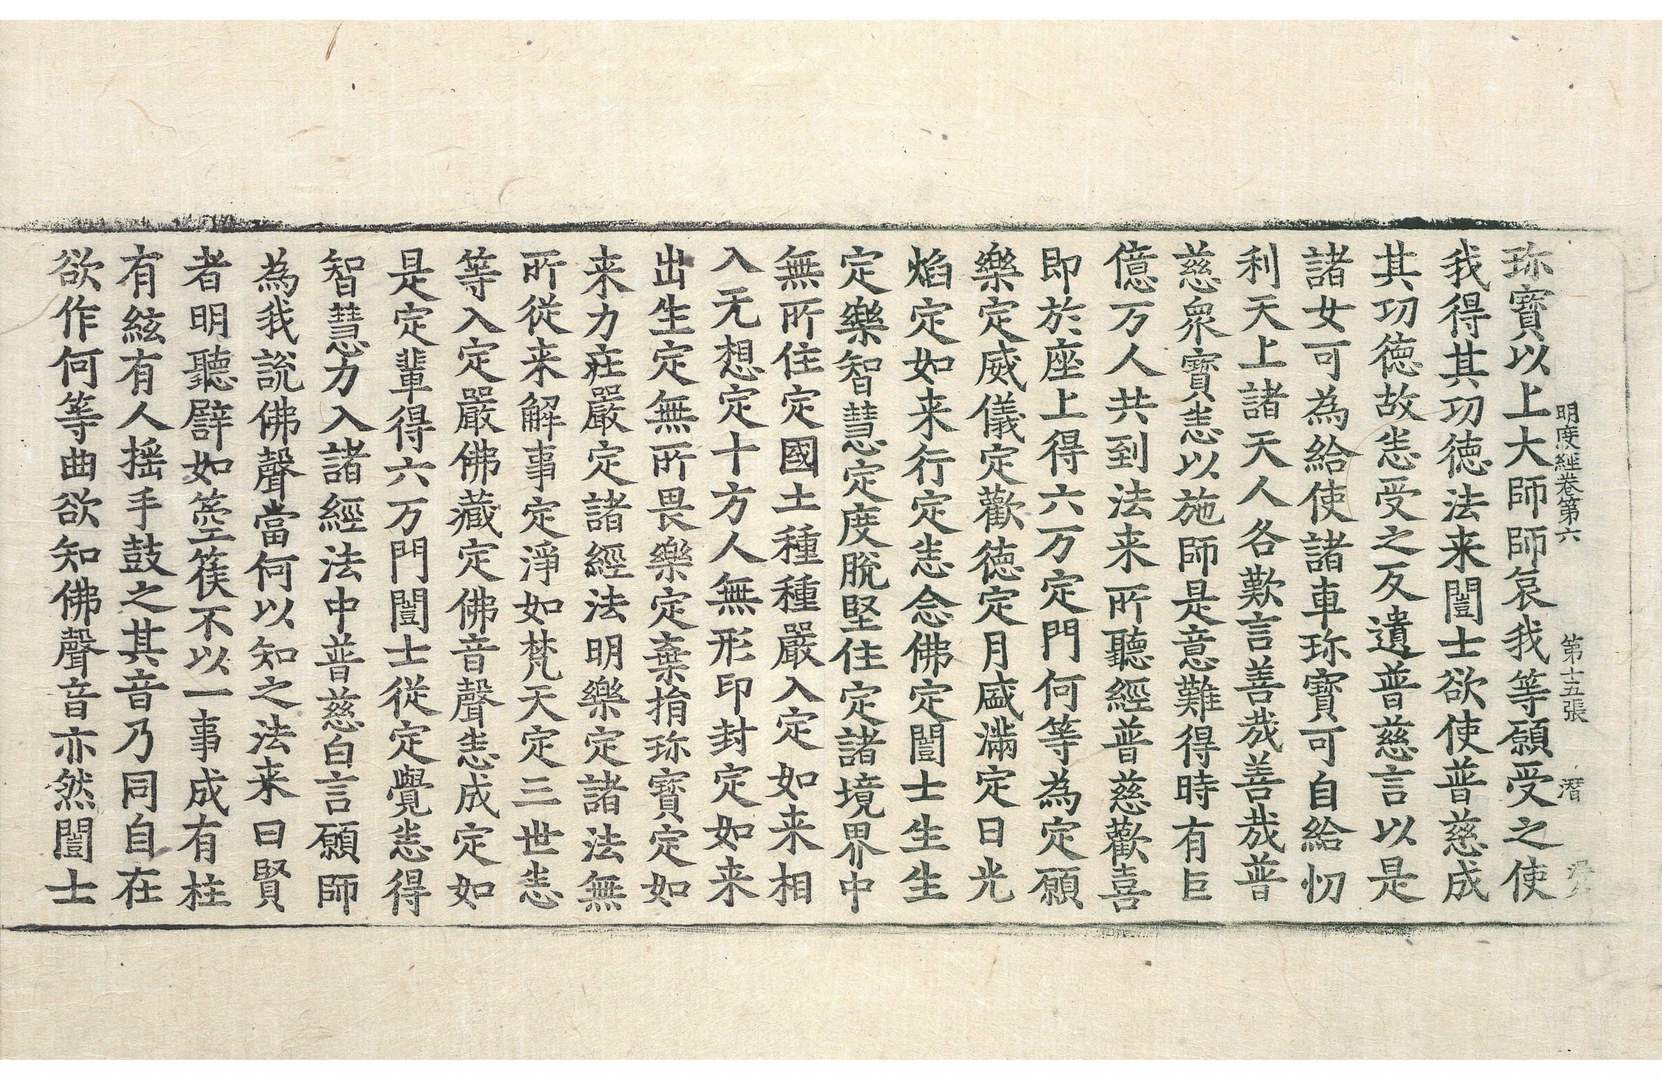 明度經卷第六　第十五張　潛
珎寶以上大師師哀我等願受之使
我得其功德法来闓士欲使普慈成
其功德故恙受之反遺普慈言以是
諸女可為給使諸車珎寶可自給忉
利天上諸天人各歎言善㢤善㢤普
慈衆寶恙以施師是意難得時有巨
億万人共到法来所聽經普慈歡喜
即於座上得六万定門何等為定願
樂定威儀定歡德定月盛滿定日光
焰定如来行定恙念佛定闓士生生
定樂智慧定度脫堅住定諸境界中
無所住定國土種種嚴入定如来相
入无想定十方人無形印封定如来
出生定無所畏樂定棄捐珎寶定如
来力莊嚴定諸經法明樂定諸法無
所從来解事定淨如梵天定三世恙
等入定嚴佛藏定佛音聲恙成定如
是定輩得六万門闓士從定覺恙得
智慧力入諸經法中普慈白言願師
為我說佛聲當何以知之法来曰賢
者明聽譬如箜篌不以一事成有柱
有絃有人揺手鼓之其音乃同自在
欲作何等曲欲知佛聲音亦然闓士